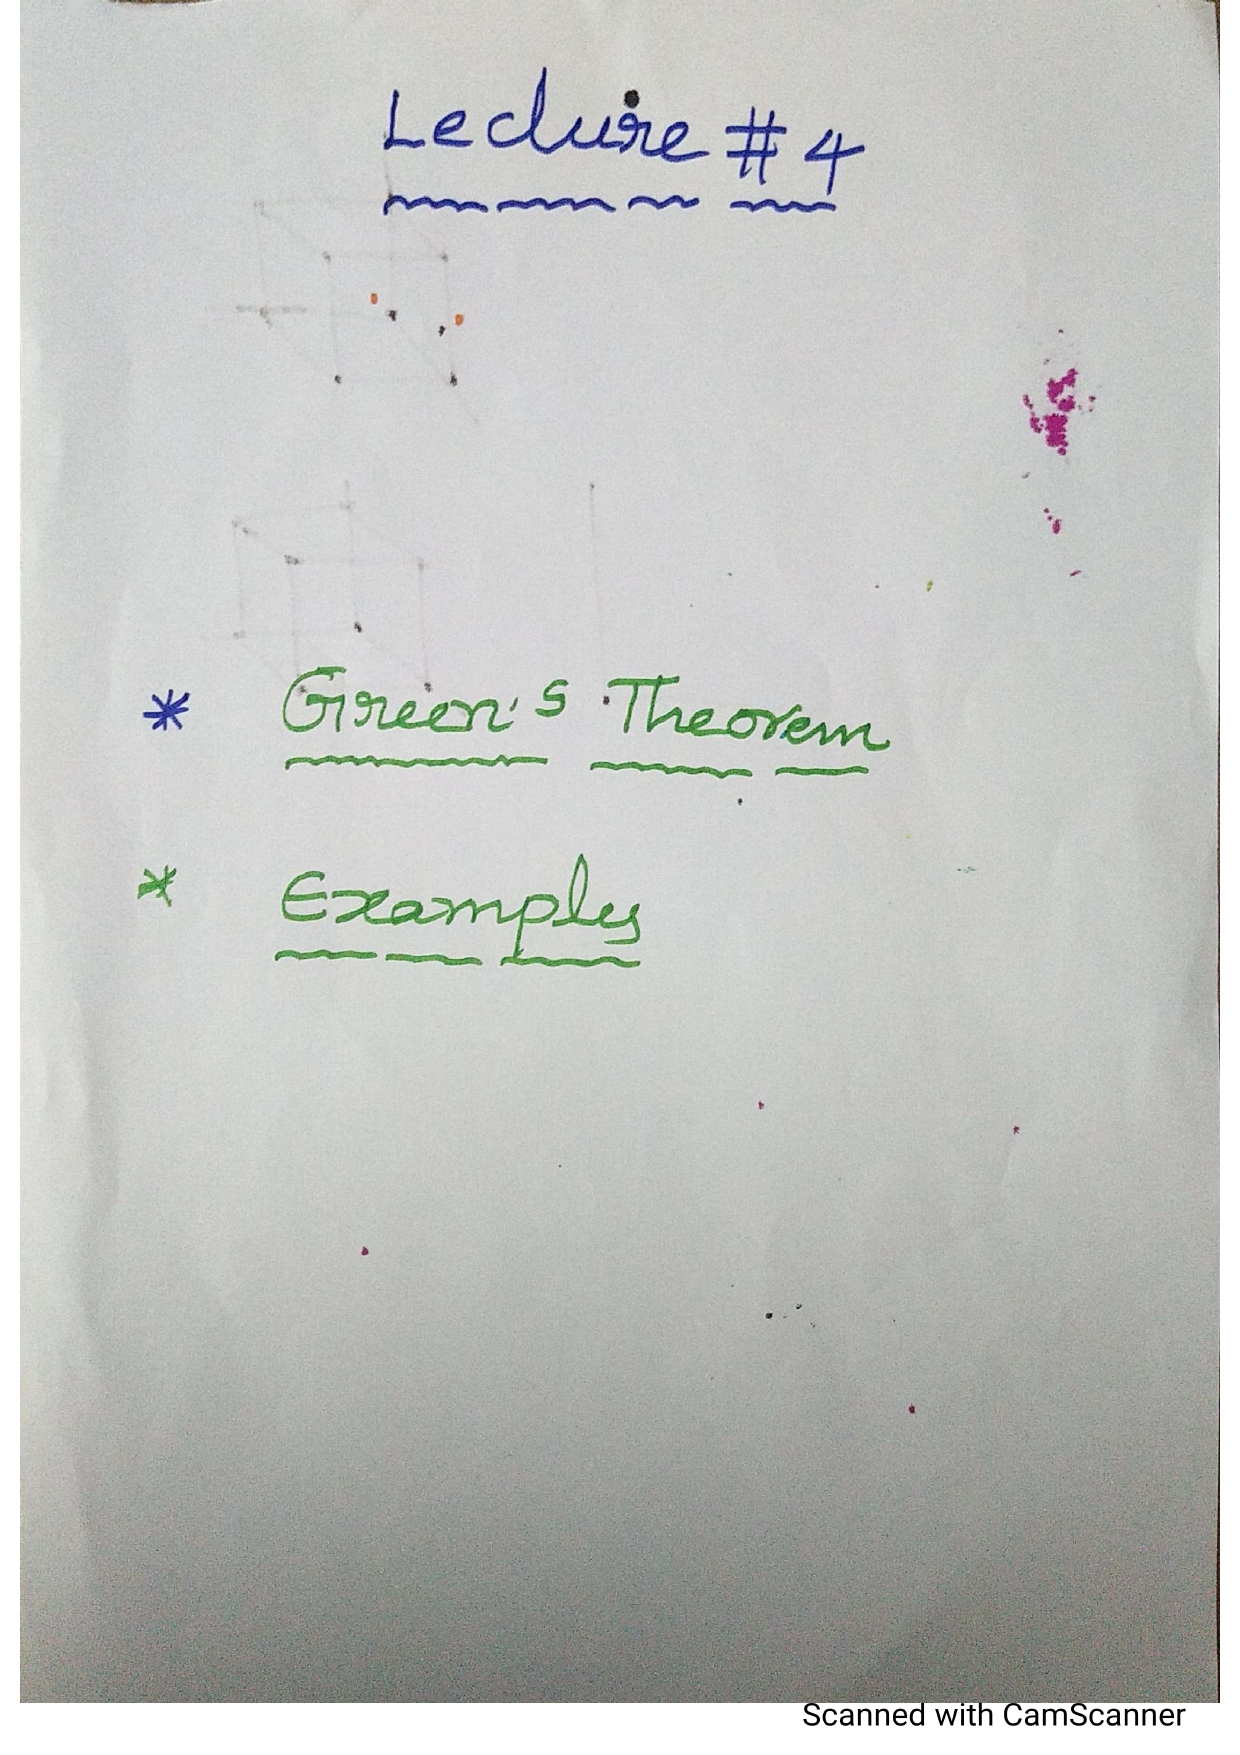 Lecture # 4
* Green's Theorem
* Examples
Scanned with CamScanner